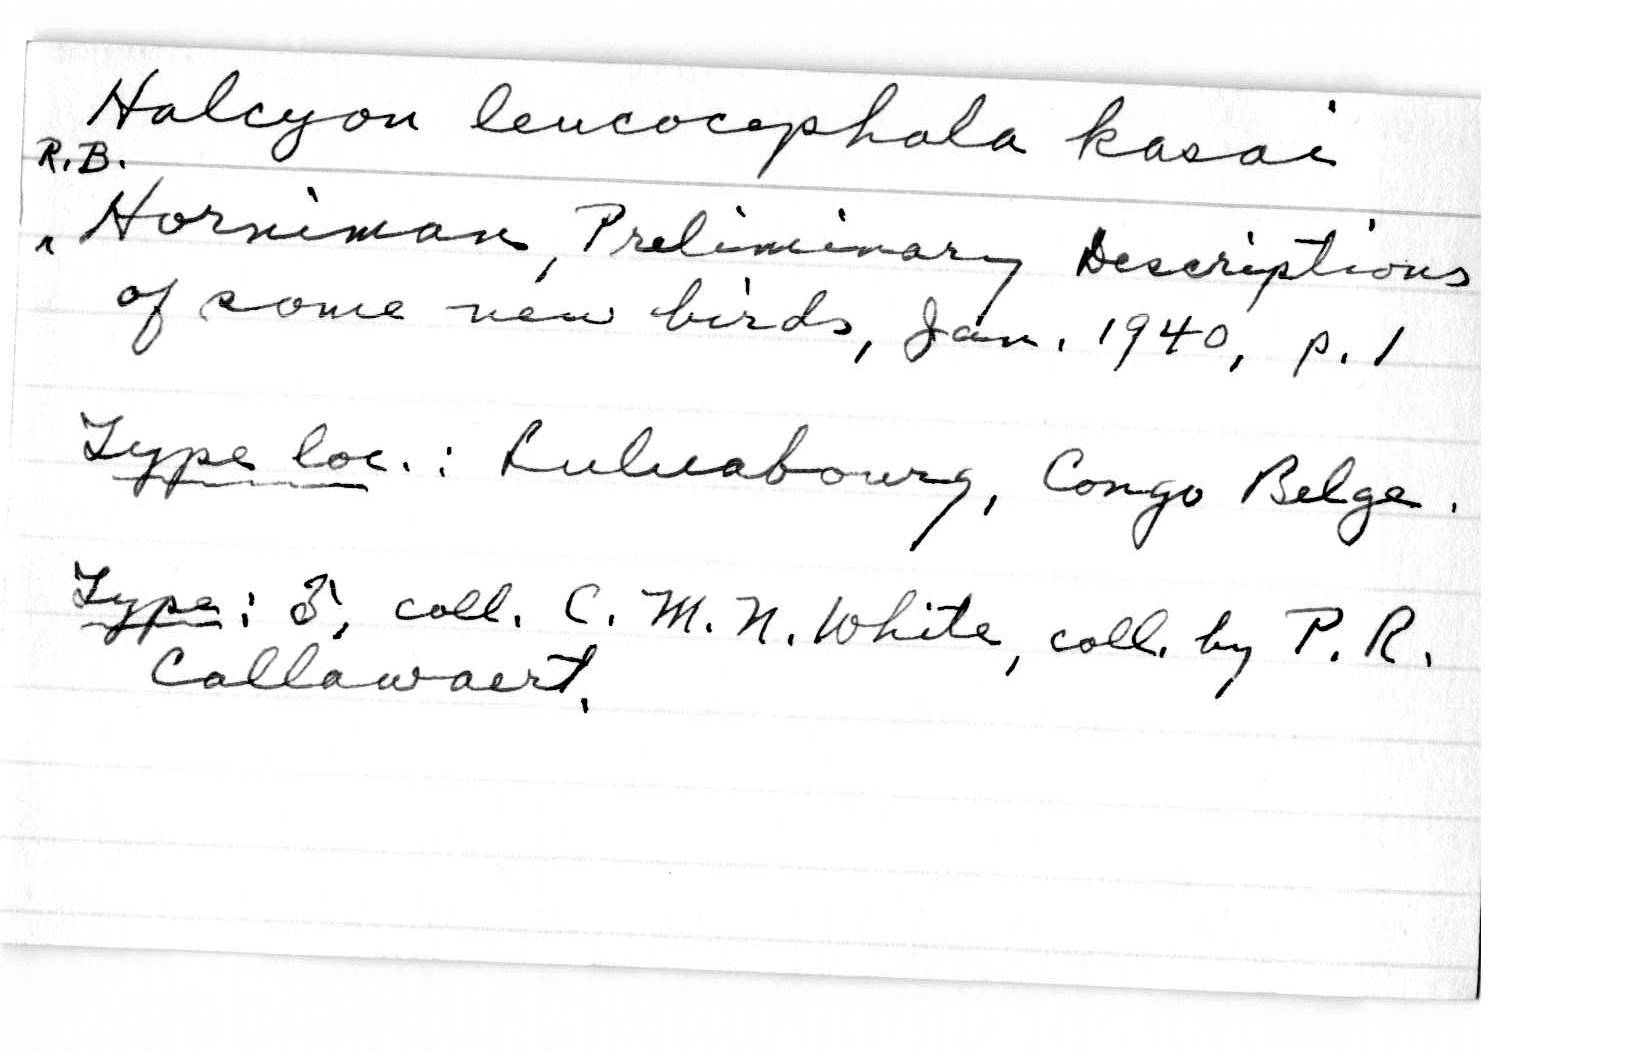 Halcyon leucocephala kasai
R.B.
Horniman, Preliminary Descriptions
of some new birds, Jan. 1940, p. 1
Type loc.: Luluabourg, Congo Belge.
Type: ♂, coll. C. M. N. White, coll. by P. R.
Callawaert.